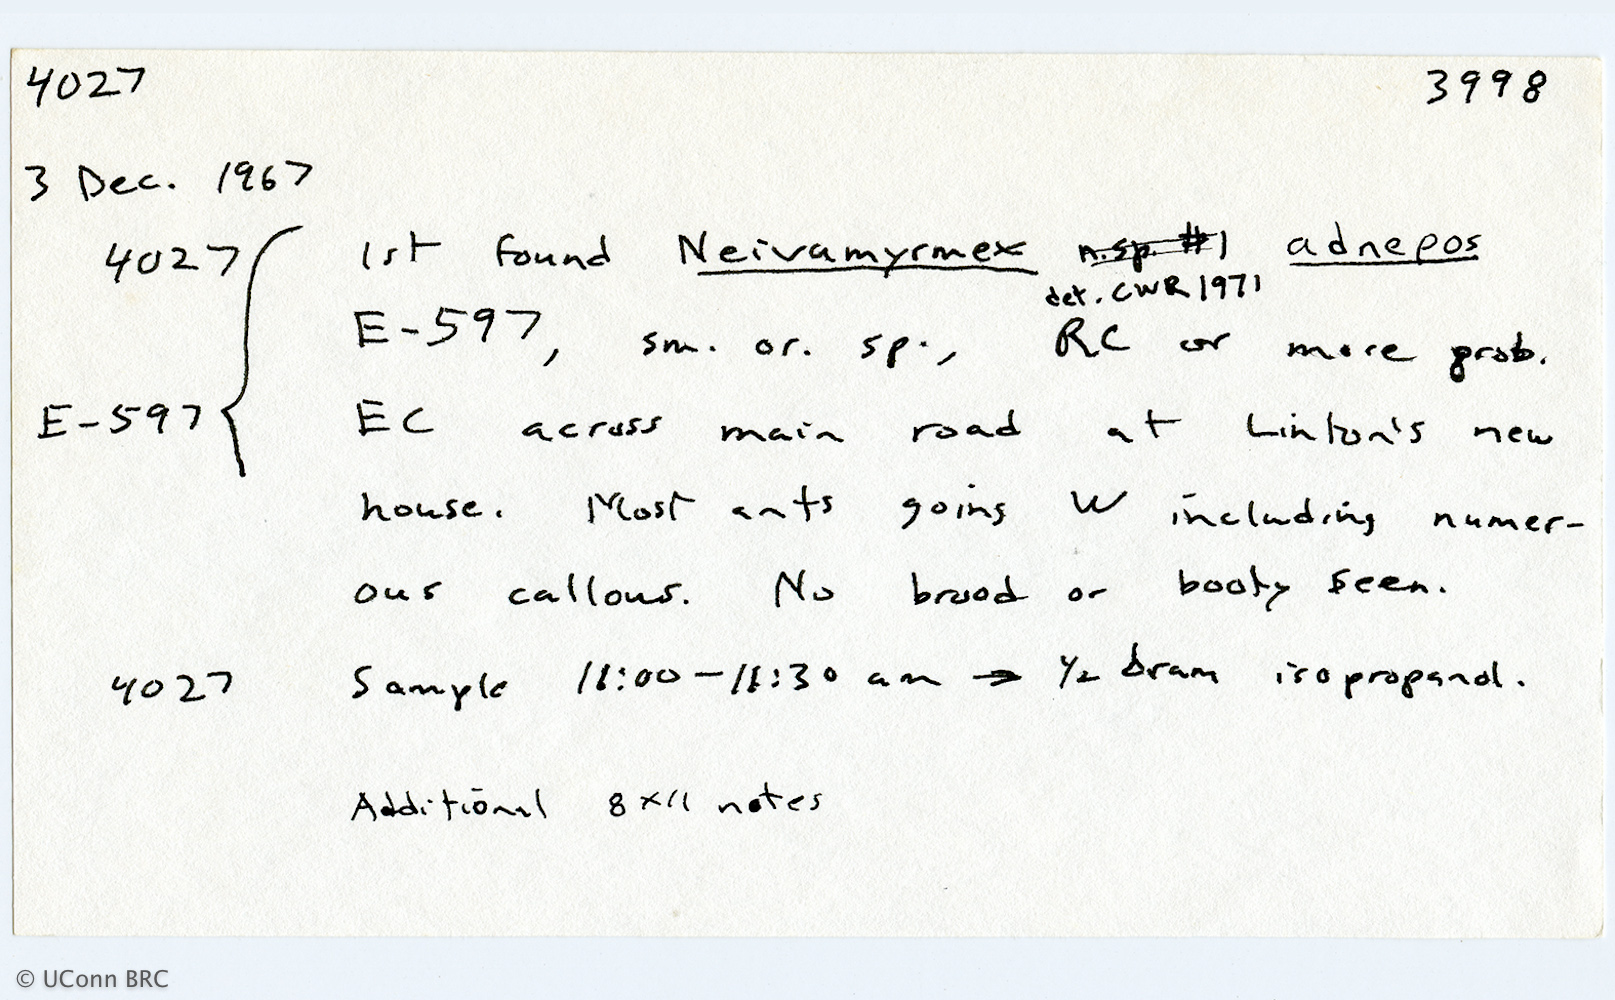 4027 3998
3 Dec. 1967
4027 1st found Neivamyrmex n.sp. #1 adnepos
det. CWR 1971
E-597, sm. or. sp., RC or more prob.
E-597 EC across main road at Linton's new
house. Most ants going W including numer-
ous callows. No brood or booty seen.
4027 Sample 11:00-11:30 am → 1/2 dram isopropanol.
Additional 8x11 notes
© UConn BRC